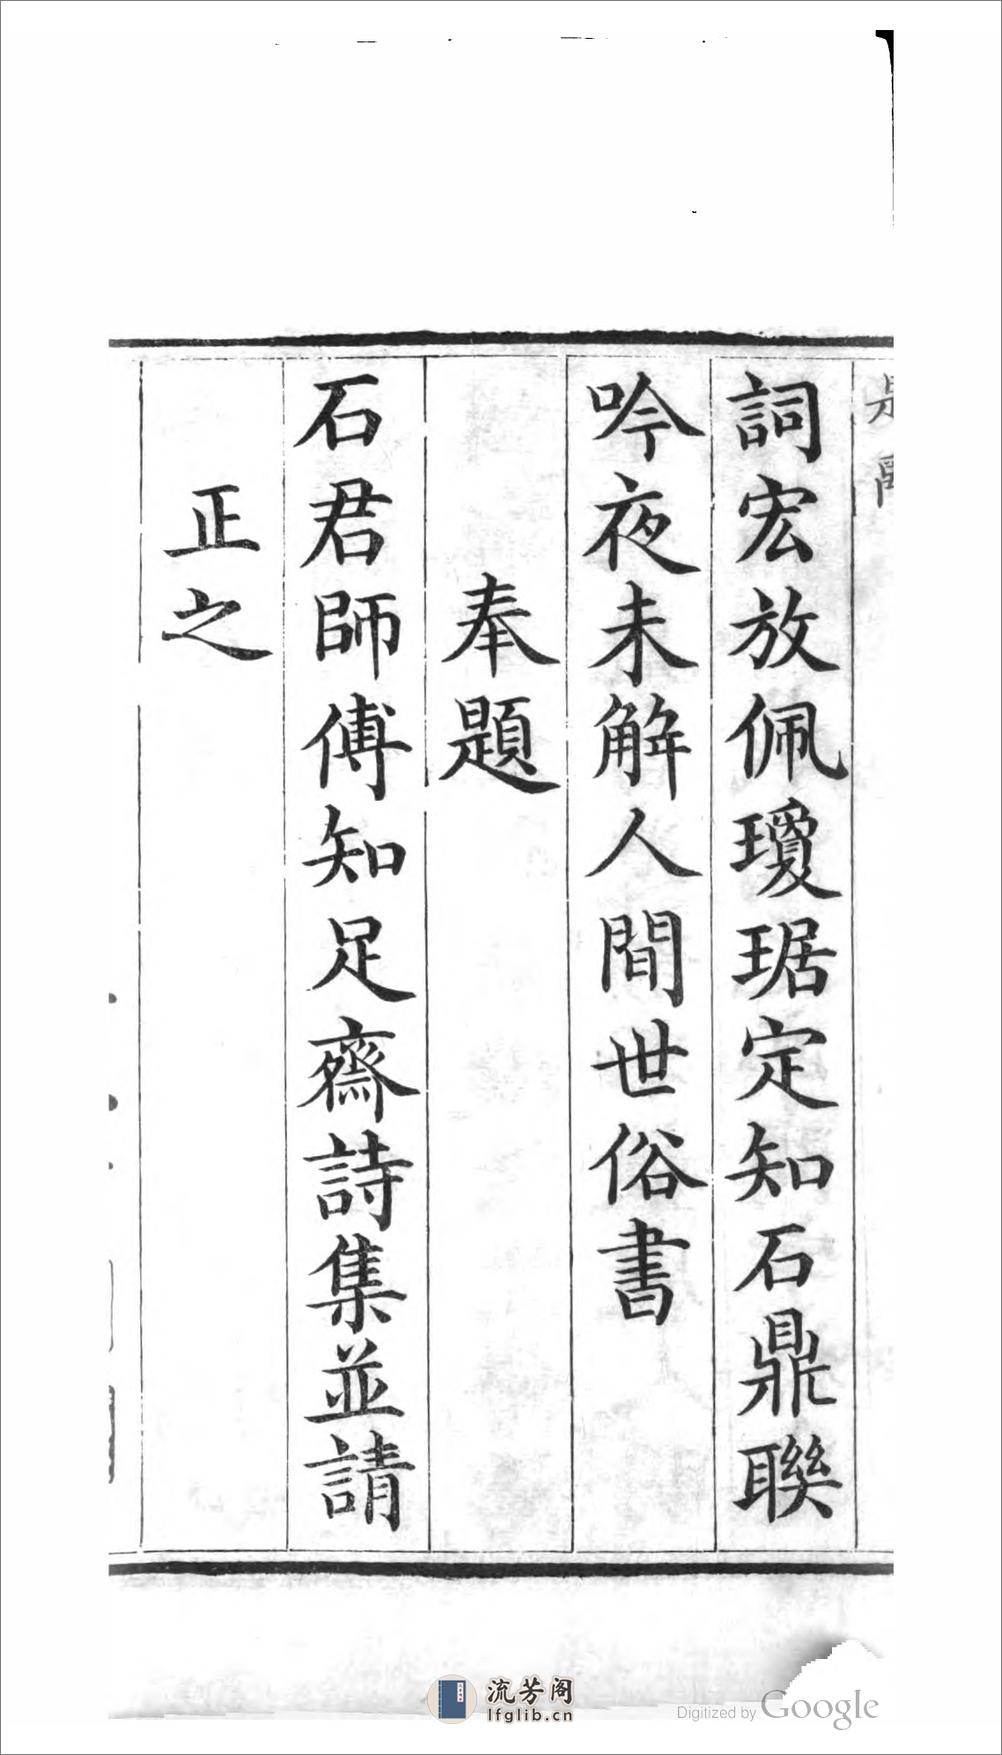 詞宏放佩瓊琚定知石鼎聯
吟夜未解人間世俗書
奉題
石君師傅知足齋詩集並請
正之
流芳阁
lfglib.cn
Digitized by Google